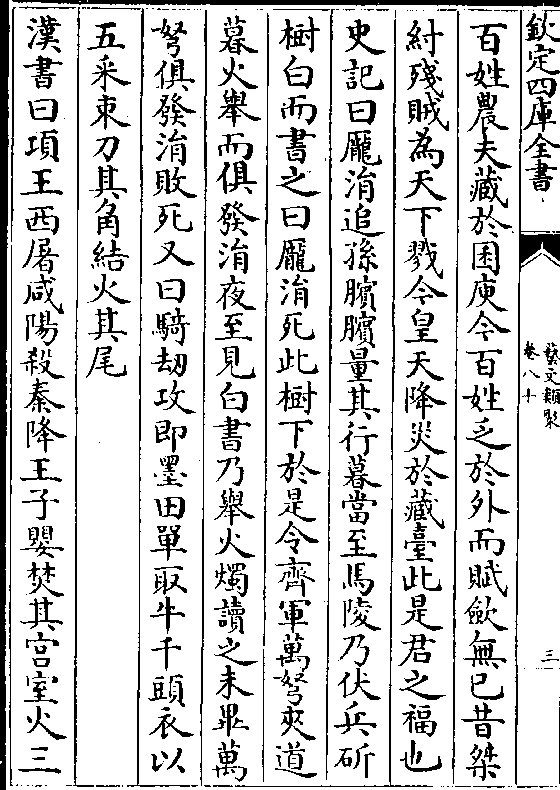 欽定四庫全書
藝文類聚
卷八十
三
百姓農夫藏於囷庾今百姓乏於外而賦歛無已昔桀
紂殘賊為天下戮今皇天降災於藏臺此是君之福也
史記曰龎涓追孫臏臏量其行暮當至馬陵乃伏兵斫
樹白而書之曰龎涓死此樹下於是令齊軍萬弩夾道
暮火舉而俱發涓夜至見白書乃舉火燭讀之未畢萬
弩俱發涓敗死又曰騎劫攻即墨田單取牛千頭衣以
五采束刀其角結火其尾
漢書曰項王西屠咸陽殺秦降王子嬰焚其宫室火三